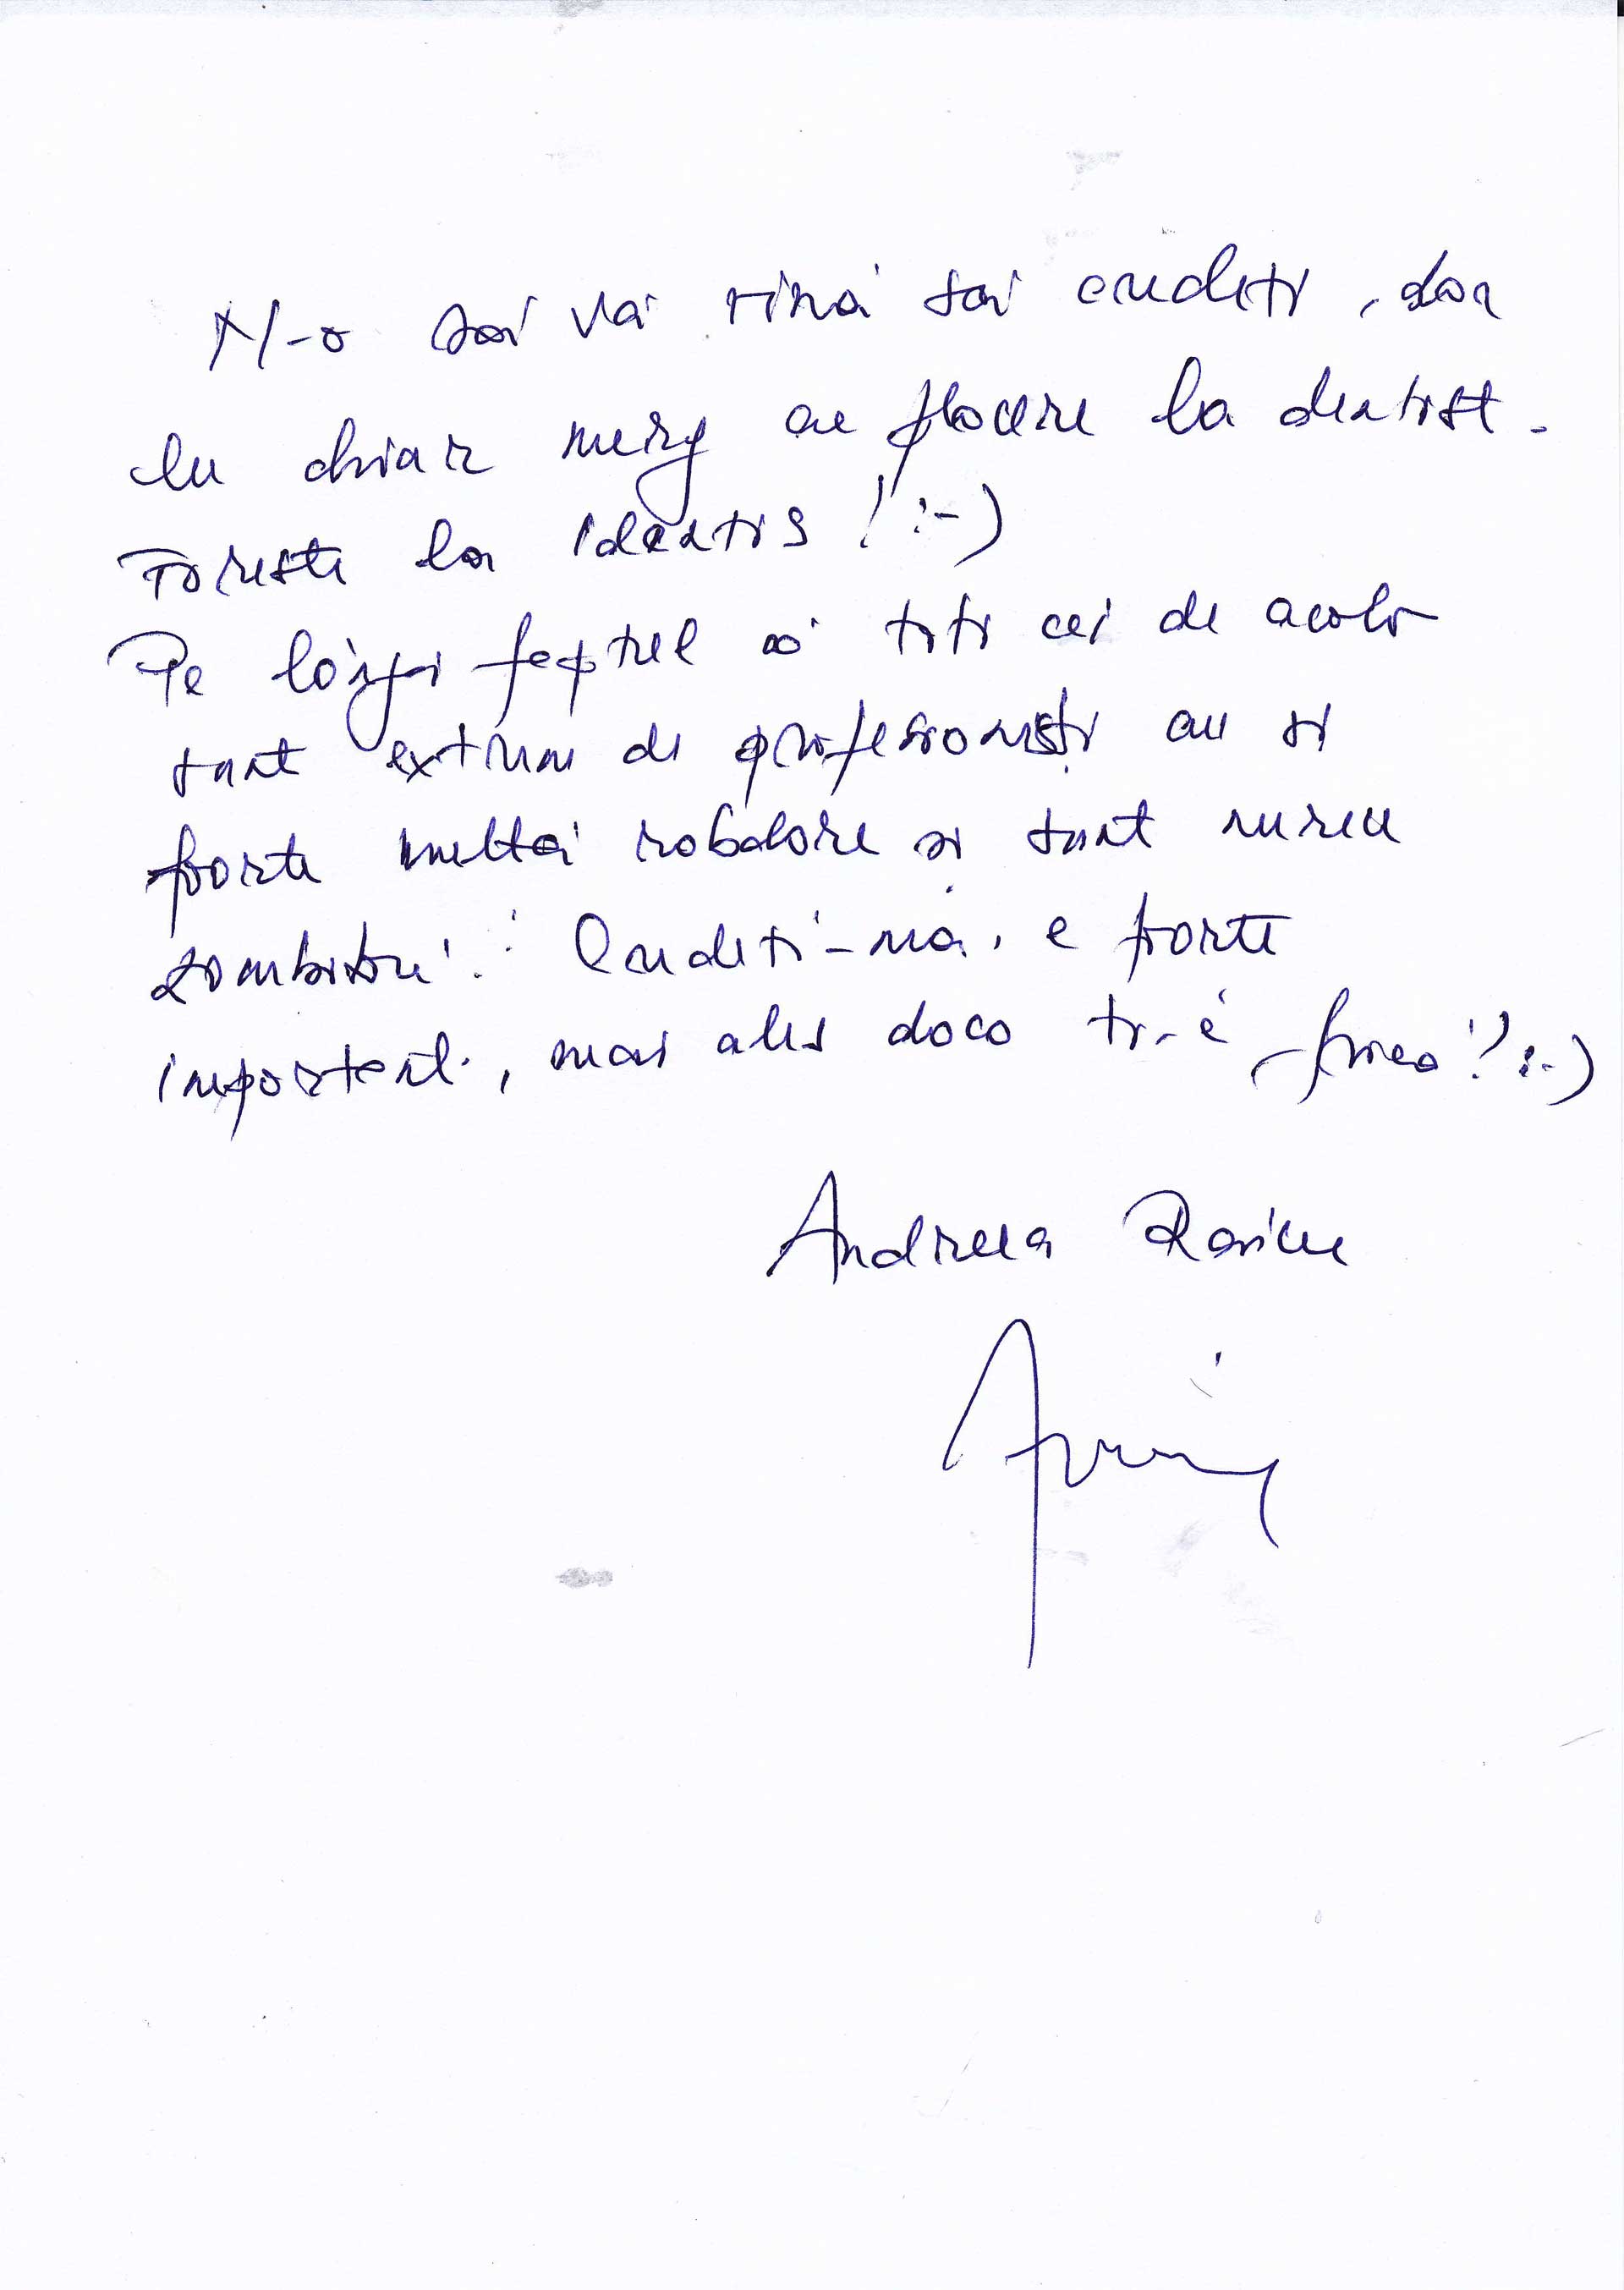 N-o să vă vină să credeți, dar
eu chiar merg cu plăcere la dentist.
Trăiește la identis! :-)
Pe lângă faptul că toți cei de acolo
sunt extrem de profesioniști au și
foarte multă răbdare și sunt mereu
zâmbitori! Credeți-mă, e foarte
important, mai ales dacă ți-e frică! :-)
Andreea Raicu